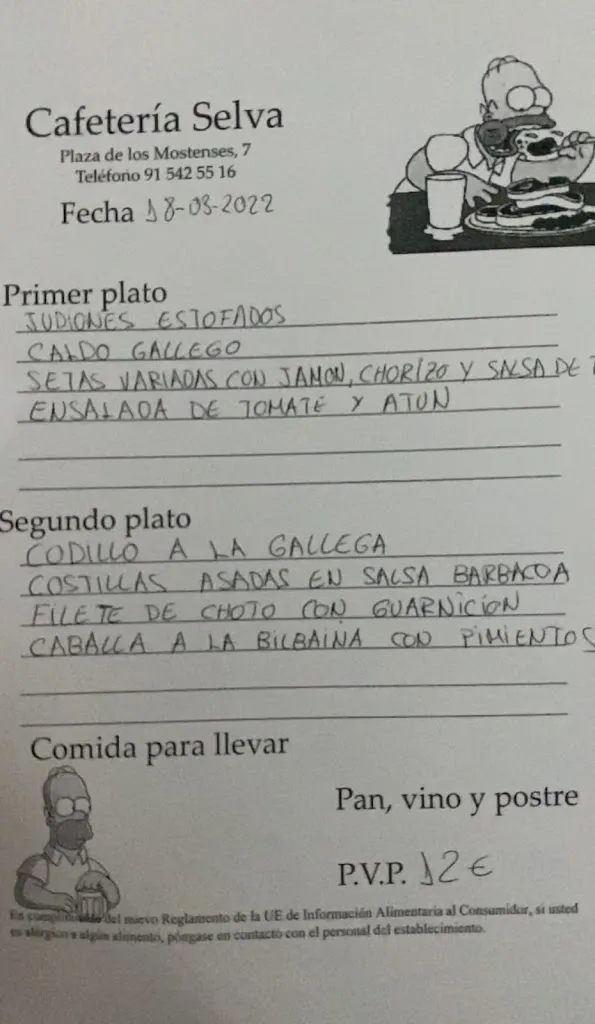 Cafetería Selva
Plaza de los Mostenses, 7
Teléfono 91 542 55 16
Fecha 18-03-2022
Primer plato
JUDIONES ESTOFADOS
CALDO GALLEGO
SETAS VARIADAS CON JAMON, CHORIZO Y SALSA DE
ENSALADA DE TOMATE Y ATUN
Segundo plato
CODILLO A LA GALLEGA
COSTILLAS ASADAS EN SALSA BARBACOA
FILETE DE CHOTO CON GUARNICION
CABALLA A LA BILBAINA CON PIMIENTOS
Comida para llevar
Pan, vino y postre
P.V.P. 12€
En del nuevo Reglamento de la UE de Información Alimentaria al Consumidor, si usted
es alérgico a algún alimento, póngase en contacto con el personal del establecimiento.